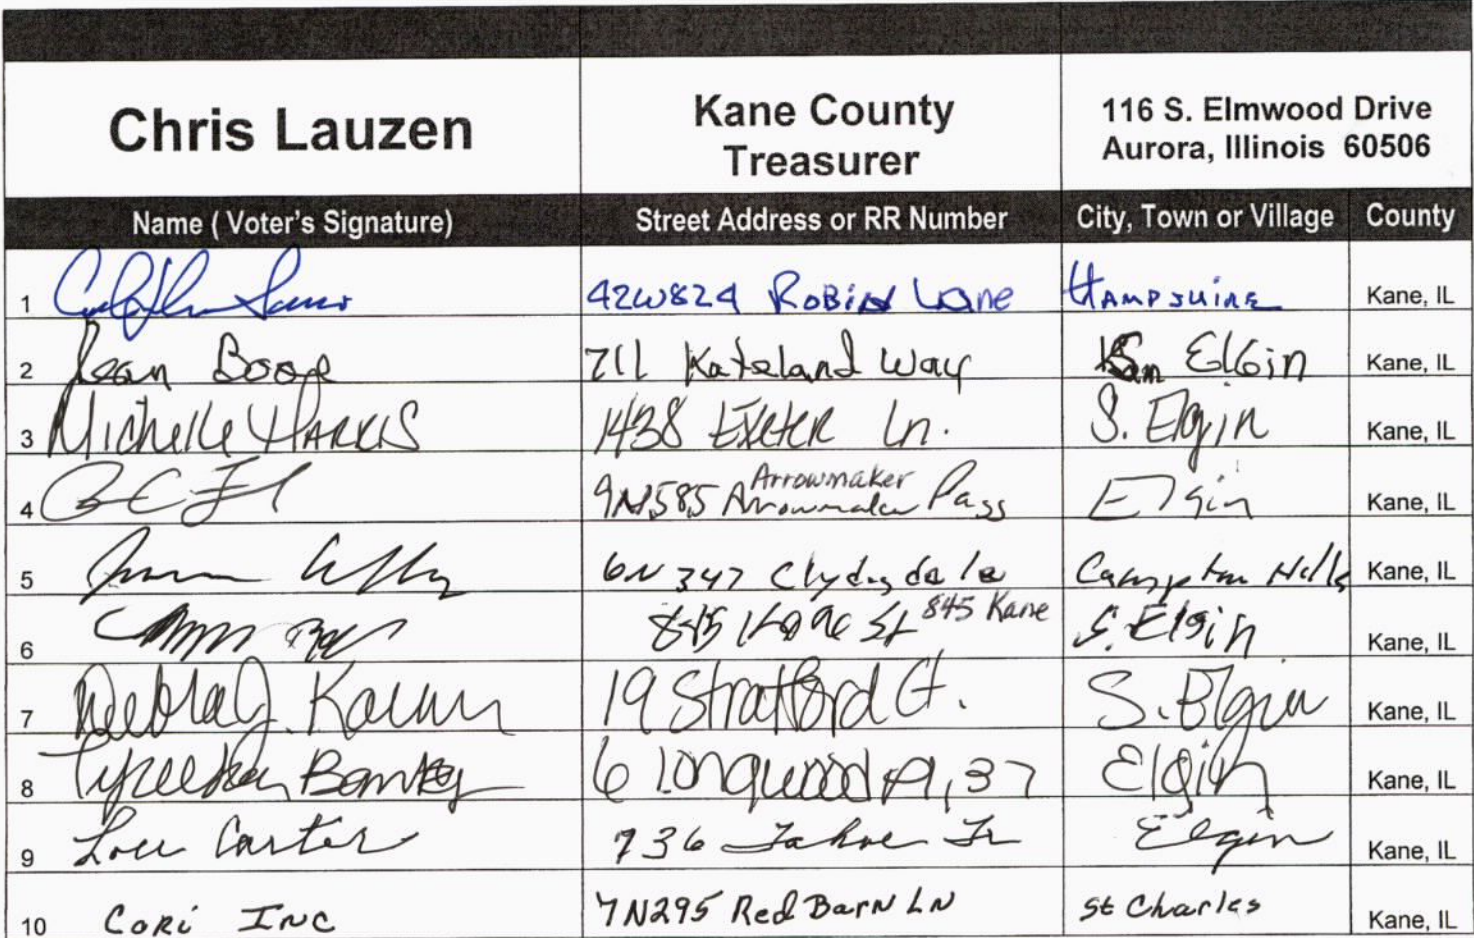 Chris Lauzen
Kane County
Treasurer
116 S. Elmwood Drive
Aurora, Illinois 60506
Name ( Voter's Signature) Street Address or RR Number City, Town or Village County
1 42W824 Robin Lane Hampshire Kane, IL
2 Jean Boop 711 Kateland Way Elgin Kane, IL
3 Michelle Harris 1438 Exeter Ln. S. Elgin Kane, IL
4 9N585 Arrowmaker Arrowmaker Pass Elgin Kane, IL
5 6N347 Clydesdale Campton Hills Kane, IL
6 845 Kane St 845 Kane S. Elgin Kane, IL
7 Debra J. 19 Stratford Ct. S. Elgin Kane, IL
8 6 Longwood Pl, 37 Elgin Kane, IL
9 Lou Carter 736 Tahoe Tr Elgin Kane, IL
10 Cori Inc 7N295 Red Barn LN St Charles Kane, IL